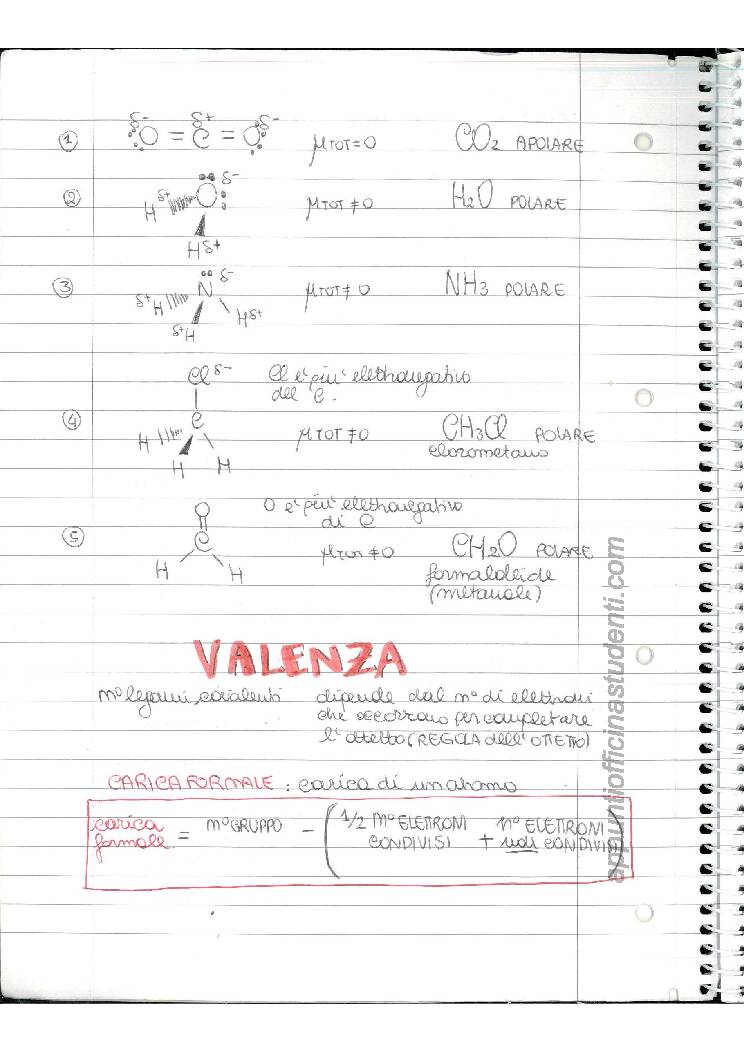 δ- δ+ δ-
① O = C = O μTOT=0 CO2 APOLARE
δ-
② δ+ H O μTOT≠0 H2O POLARE
Hδ+
δ-
③ δ+H N Hδ+ μTOT≠0 NH3 POLARE
δ+H
Cl δ- Cl e' piu' elettronegativo
del C.
④ C μTOT≠0 CH3Cl POLARE
H H H clorometano
O O e' piu' elettronegativo
di C
⑤ C μTOT≠0 CH2O POLARE
H H formaldeide
(metanale)
VALENZA
n° legami covalenti dipende dal n° di elettroni
che occorrono per completare
l'ottetto (REGOLA dell'OTTETTO)
CARICA FORMALE : carica di un atomo
carica formale = n° GRUPPO - ( 1/2 n° ELETTRONI CONDIVISI + n° ELETTRONI non CONDIVISI )
appuntiofficinastudenti.com